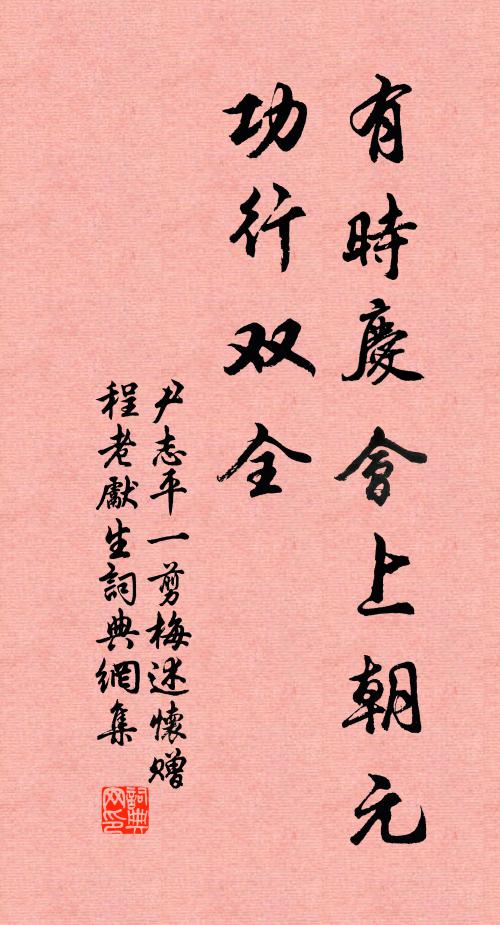 有時慶會上朝元
功行双全
尹志平一剪梅述懷赠
程老獻生詞典網集
詞典网印